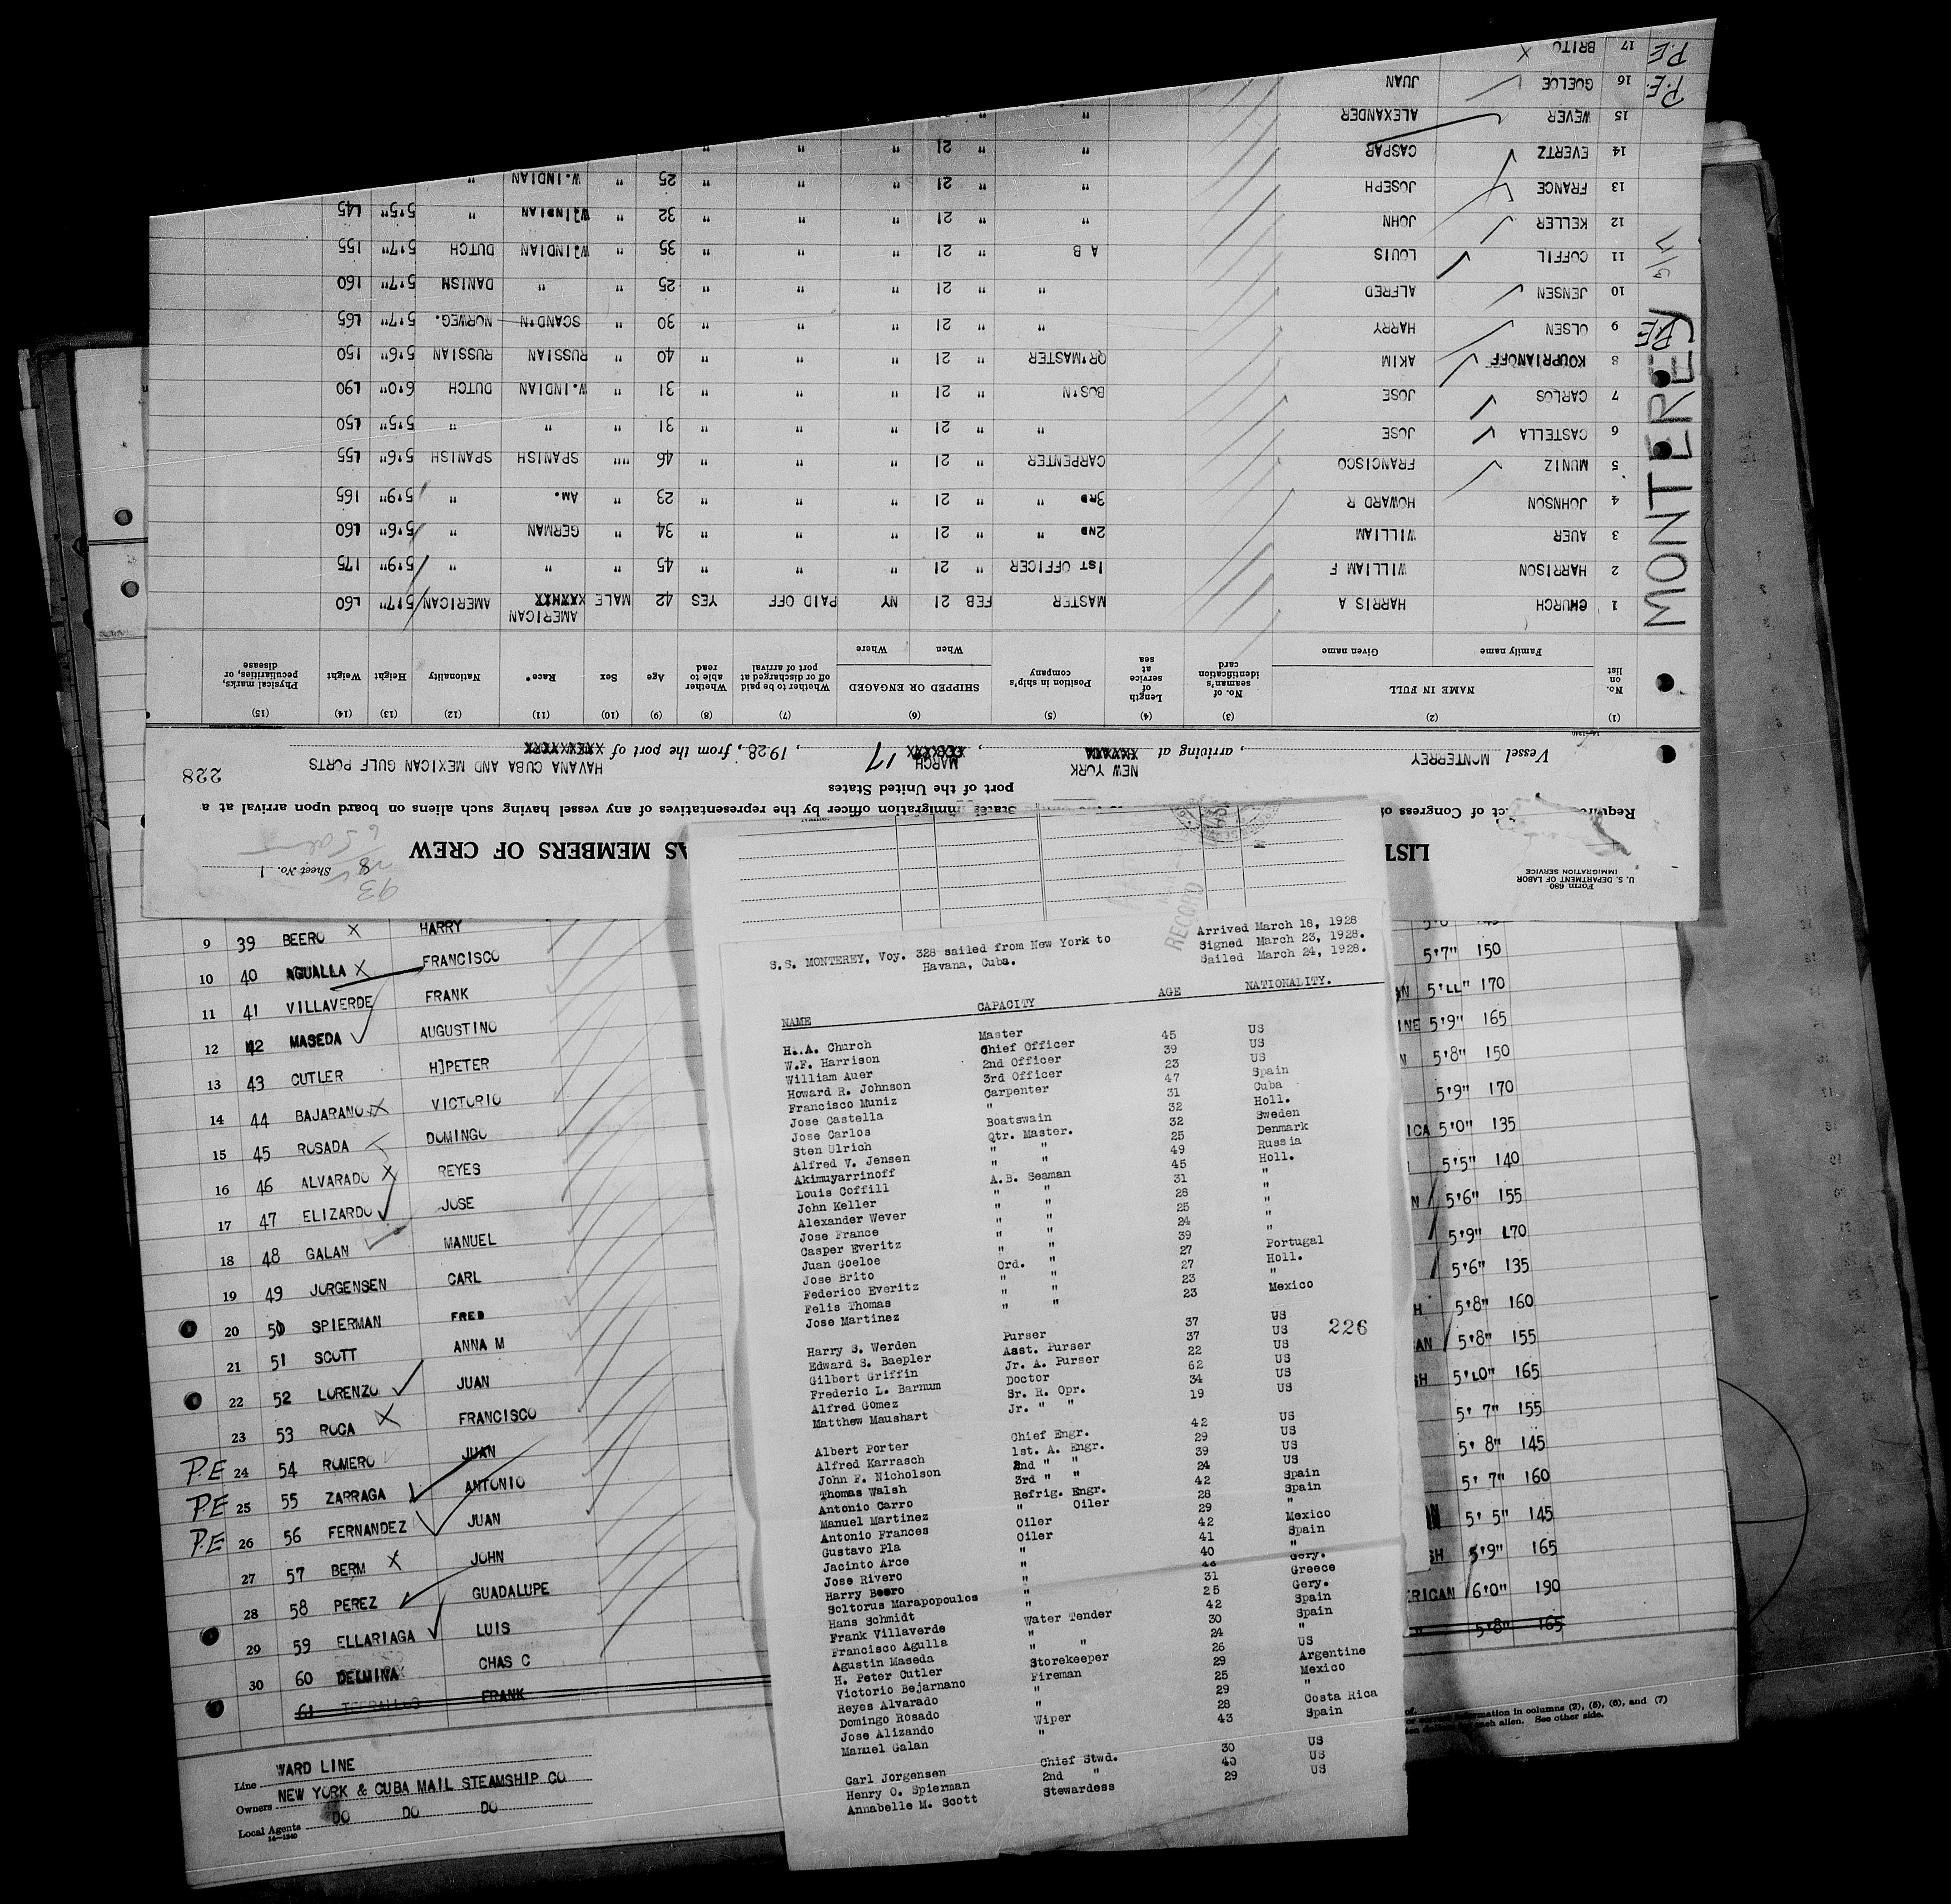 Form 680
U. S. DEPARTMENT OF LABOR
IMMIGRATION SERVICE
LIST AS MEMBERS OF CREW
Sheet No. 1
93
Act of Congress immigration officer by the representatives of any vessel having such aliens on board upon arrival at a
port of the United States
228
Vessel MONTERREY, arriving at NEW YORK, MARCH 17, 1928, from the port of HAVANA CUBA AND MEXICAN GULF PORTS
(1) (2) (3) (4) (5) (6) (7) (8) (9) (10) (11) (12) (13) (14) (15)
No. on list NAME IN FULL Family name Given name No. of seaman's identification card Length of service at sea Position in ship's company SHIPPED OR ENGAGED When Where Whether to be paid off or discharged at port of arrival Whether able to read Age Sex Race* Nationality Height Weight Physical marks, peculiarities, or disease
MONTEREY 3/17
1 CHURCH HARRIS A MASTER FEB 21 NY PAID OFF YES 42 MALE AMERICAN AMERICAN 5'7" 160
2 HARRISON WILLIAM F 1ST OFFICER " 21 " " " 45 " " " 5'9" 175
3 AUER WILLIAM 2ND " " 21 " " " 34 " GERMAN " 5'6" 160
4 JOHNSON HOWARD R 3RD " " 21 " " " 23 " AM. " 5'9" 165
5 MUNIZ FRANCISCO CARPENTER " 21 " " " 46 "" SPANISH SPANISH 5'6" 155
6 CASTELLA JOSE " " 21 " " " 31 " " " 5'5" 150
7 CARLOS JOSE BOS'N " 21 " " " 31 " W.INDIAN DUTCH 6'0" 190
8 KOUPRIANOFF AKIM QR'MASTER " 21 " " " 40 " RUSSIAN RUSSIAN 5'6" 150
P.E 9 OLSEN HARRY " " 21 " " " 30 " SCAND'N NORWEG. 5'7" 165
10 JENSEN ALFRED " " 21 " " " 25 " " DANISH 5'7" 160
11 COFFIL LOUIS A B " 21 " " " 35 " W.INDIAN DUTCH 5'7" 155
12 KELLER JOHN " " 21 " " " 32 " W.INDIAN " 5'5" 145
13 FRANCE JOSEPH " " 21 " " " 25 " W.INDIAN "
14 EVERTZ CASPAR " " 21 " " "
15 WEVER ALEXANDER "
P.E. 16 GOELOE JUAN
P.E 17 BRITO X
9 39 BEERO X HARRY
10 40 AGUALLA X FRANCISCO
11 41 VILLAVERDE FRANK
12 42 MASEDA AUGUSTINO
13 43 CUTLER H]PETER
14 44 BAJARANO X VICTORIO
15 45 ROSADA DOMINGO
16 46 ALVARADO X REYES
17 47 ELIZARDO JOSE
18 48 GALAN MANUEL
19 49 JORGENSEN CARL
20 50 SPIERMAN FRED
21 51 SCOTT ANNA M
22 52 LORENZO JUAN
23 53 ROCA X FRANCISCO
P.E 24 54 ROMERO JUAN
P.E 25 55 ZARRAGA ANTONIO
P.E 26 56 FERNANDEZ JUAN
27 57 BERM X JOHN
28 58 PEREZ GUADALUPE
29 59 ELLARIAGA LUIS
30 60 DELMINA CHAS C
61 FRANK
Line WARD LINE
Owners NEW YORK & CUBA MAIL STEAMSHIP CO
Local Agents DO DO DO
14—1240
RECORD
S.S. MONTEREY, Voy. 328 sailed from New York to
Havana, Cuba.
Arrived March 18, 1928
Signed March 23, 1928.
Sailed March 24, 1928.
NAME CAPACITY AGE NATIONALITY.
H..A. Church Master
W.F. Harrison Chief Officer 45 US
William Auer 2nd Officer 39 US
Howard R. Johnson 3rd Officer 23 US
Francisco Muniz Carpenter 47 Spain
Jose Castella " 31 Cuba
Jose Carlos Boatswain 32 Holl.
Sten Ulrich Qtr. Master. 32 Sweden
Alfred V. Jensen " " 25 Denmark
Akimuyarrinoff " " 49 Russia
Louis Coffill A.B. Seaman 45 Holl.
John Keller " " 31 "
Alexander Wever " " 28 "
Jose France " " 25 "
Casper Everitz " " 24 "
Juan Goeloe " " 39 "
Jose Brito Ord. " 27 Portugal
Federico Everitz " " 27 Holl.
Felis Thomas " " 23 "
Jose Martinez " " 23 Mexico
226
Harry S. Werden Purser 37 US
Edward S. Baepler Asst. Purser 37 US
Gilbert Griffin Jr. A. Purser 22 US
Frederic L. Barnum Doctor 62 US
Alfred Gomez Sr. R. Opr. 34 US
Matthew Maushart Jr. " " 19 US
Albert Porter Chief Engr. 42 US
Alfred Karrasch 1st. A. Engr. 29 US
John F. Nicholson 2nd " " 39 US
Thomas Walsh 3rd " " 24 US
Antonio Carro Refrig. Engr. 42 Spain
Manuel Martinez " Oiler 28 Spain
Antonio Frances Oiler 29 "
Gustavo Pla Oiler 42 Mexico
Jacinto Arce " 41 Spain
Jose Rivero " 40 "
Harry Beero " 44 Gery.
Soltorus Marapopoulos " 31 Greece
Hans Schmidt " 25 Gery.
Frank Villaverde Water Tender 42 Spain
Francisco Agulla " 30 Spain
Agustin Maseda " " 24 "
H. Peter Cutler Storekeeper 26 US
Victorio Bejarnano Fireman 29 Argentine
Reyes Alvarado " 25 Mexico
Domingo Rosado " 29 "
Jose Alizando Wiper 28 Costa Rica
Manuel Galan " 43 Spain
Carl Jorgensen Chief Stwd. 30 US
Henry O. Spierman 2nd " 40 US
Annabelle M. Scott Stewardess 29 US
5'7" 150
5'11" 170
5'9" 165
5'8" 150
5'9" 170
5'0" 135
5'5" 140
5'6" 155
5'9" 170
5'6" 135
5'8" 160
5'8" 155
5'10" 165
5' 7" 155
5' 8" 145
5' 7" 160
5' 5" 145
5'9" 165
6'0" 190
" 5'8" 165
information in columns (2), (5), (6), and (7)
each alien. See other side.